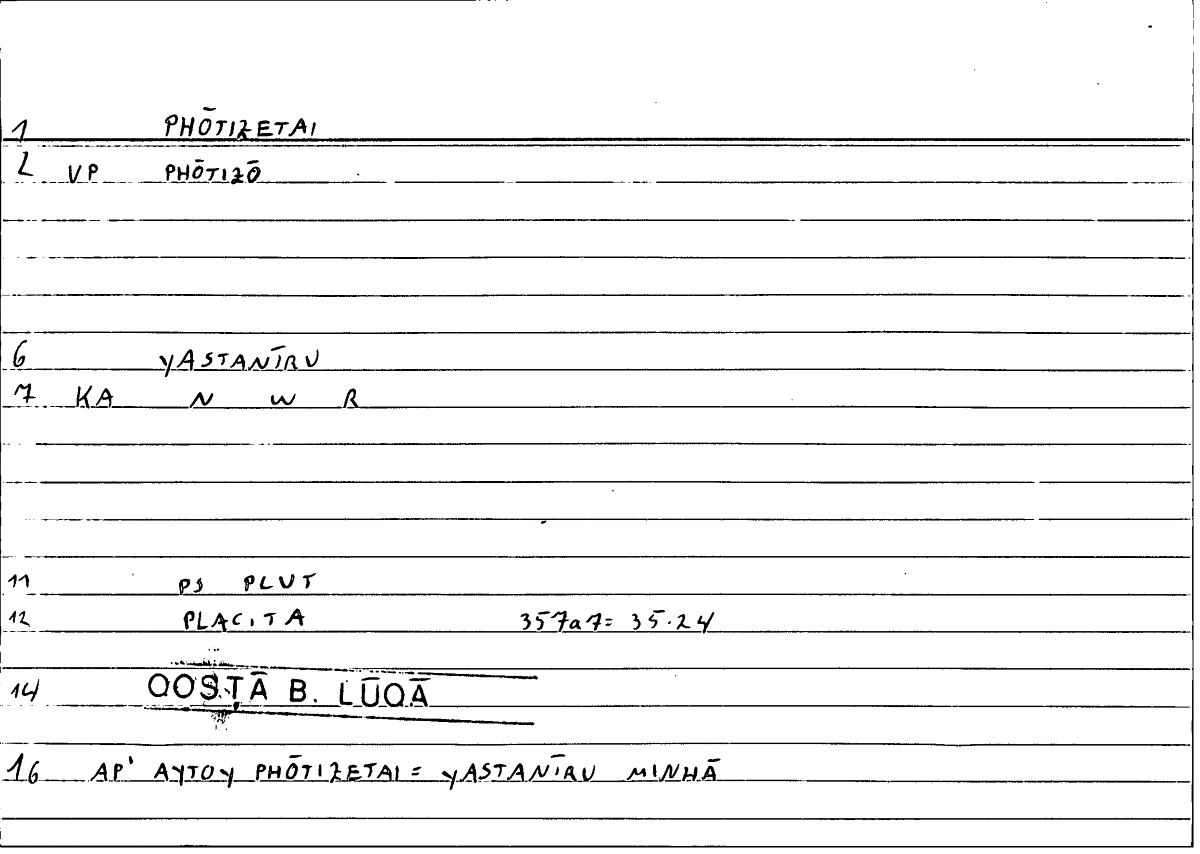 1 PHŌTIZETAI
2 VP PHŌTIZŌ
6 yASTANĪRU
7 KA N W R
11 PS PLUT
12 PLACITA 357a7= 35.24
14 QOSṬĀ B. LŪQĀ
16 AP' AYTOY PHŌTIZETAI = yASTANĪRU MINHĀ